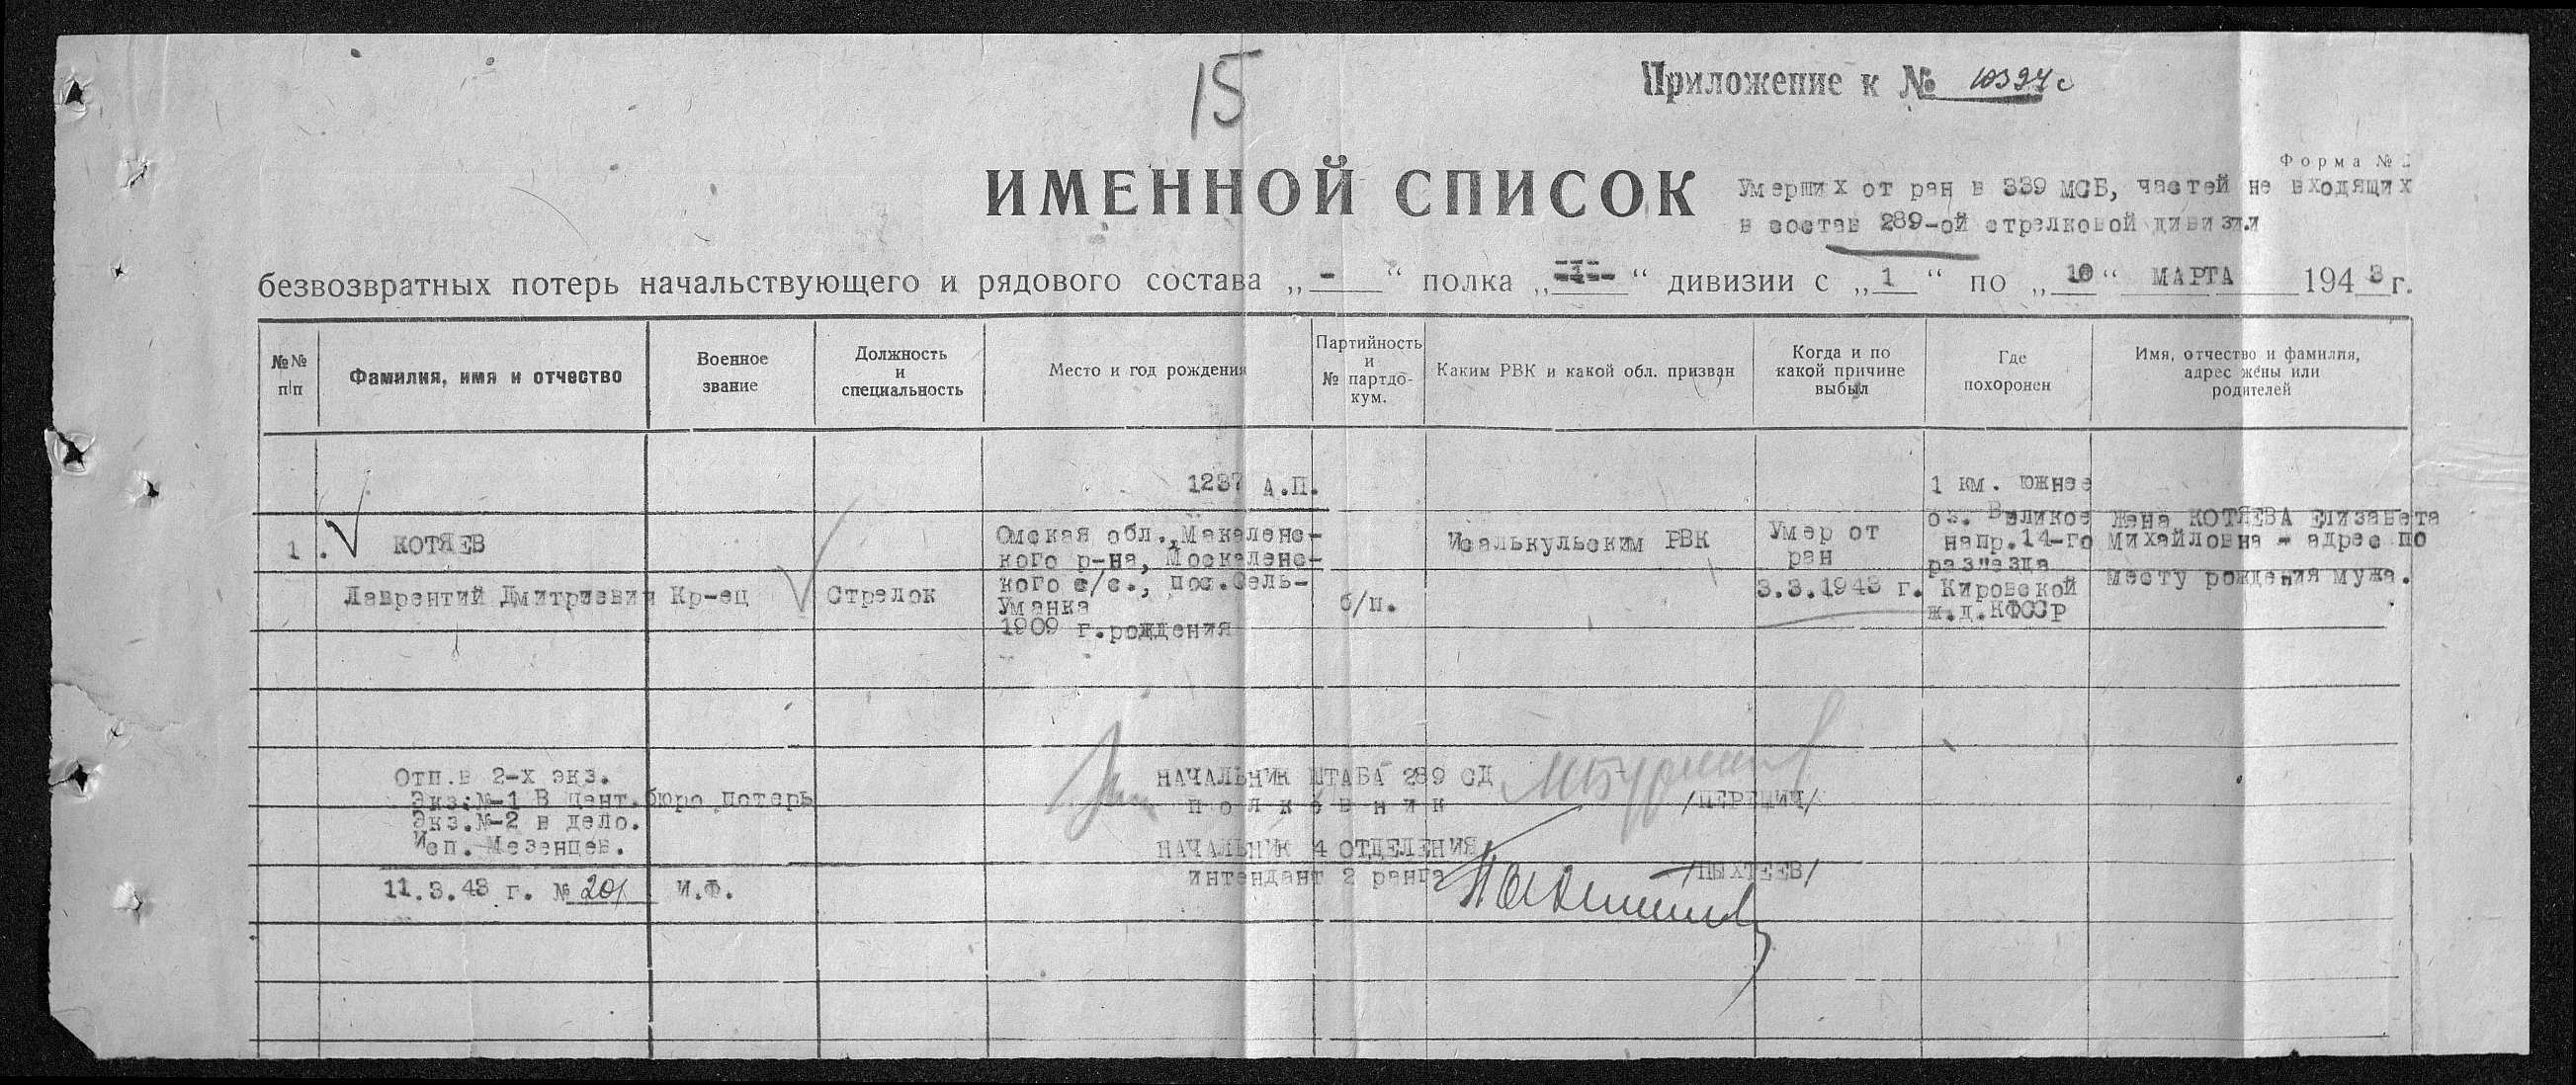 15
Приложение к № 10394с
Форма № 2
ИМЕННОЙ СПИСОК
Умерших от ран в 339 МСБ, частей не входящих
в состав 289-ой стрелковой дивизии
безвозвратных потерь начальствующего и рядового состава „ - “ полка „ --- “ дивизии с „ 1 “ по „ 10 “ МАРТА 1943 г.
№№ п/п
Фамилия, имя и отчество
Военное звание
Должность и специальность
Место и год рождения
Партийность и № партдо- кум.
Каким РВК и какой обл. призван
Когда и по какой причине выбыл
Где похоронен
Имя, отчество и фамилия, адрес жены или родителей
1237 А.П.
1.
КОТЯЕВ
Лаврентий Дмитриевич
Кр-ец
Стрелок
Омская обл., Макаленс-
кого р-на, Москаленс-
кого с/с., пос.Сель-
Уманка
1909 г.рождения
б/п.
Исалькульским РВК
Умер от
ран
3.3.1943 г.
1 км. южнее
оз. Великое
напр.14-го
раз"езда
Кировской
ж.д.КФССР
Жена КОТЯЕВА Елизавета
Михайловна - адрес по
месту рождения мужа.
Отп.в 2-х экз.
Экз.№-1 В цент.бюро потерь
Экз.№-2 в дело.
Исп.-Мезенцев.
11.3.43 г. № 201 И.Ф.
НАЧАЛЬНИК ШТАБА 289 СД
полковник
НАЧАЛЬНИК 4 ОТДЕЛЕНИЯ
интендант 2 ранга
/ПЫХТЕЕВ/